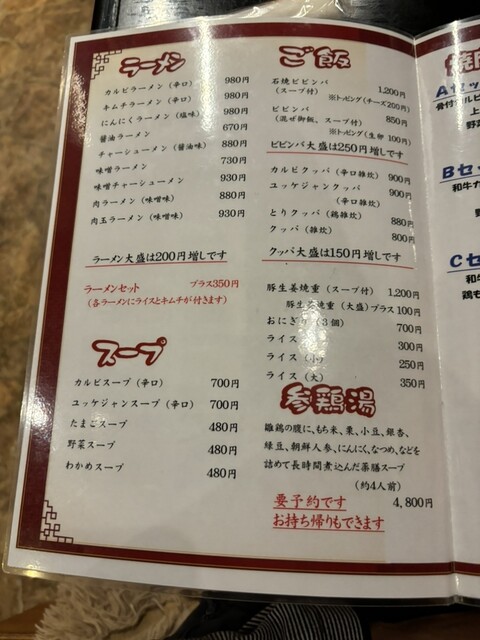 ラーメン
カルビラーメン（辛口） 980円
キムチラーメン（辛口） 980円
にんにくラーメン（塩味） 980円
醤油ラーメン 670円
チャーシューメン（醤油味） 880円
味噌ラーメン 730円
味噌チャーシューメン 930円
肉ラーメン（味噌味） 880円
肉玉ラーメン（味噌味） 930円
ラーメン大盛は200円増しです
ラーメンセット プラス350円
（各ラーメンにライスとキムチが付きます）
スープ
カルビスープ（辛口） 700円
ユッケジャンスープ（辛口） 700円
たまごスープ 480円
野菜スープ 480円
わかめスープ 480円
ご飯
石焼ビビンバ 1,200円
（スープ付） ※トッピング（チーズ200円）
ビビンバ 850円
（混ぜ御飯、スープ付）
※トッピング（生卵 100円）
ビビンバ大盛は250円増しです
カルビクッパ（辛口雑炊） 900円
ユッケジャンクッパ 900円
（辛口雑炊）
とりクッパ（鶏雑炊） 880円
クッパ（雑炊） 800円
クッパ大盛は150円増しです
豚生姜焼重（スープ付） 1,200円
豚生姜焼重（大盛）プラス100円
おにぎり（3個） 700円
ライス 300円
ライス（小） 250円
ライス（大） 350円
参鶏湯
雛鶏の腹に、もち米、栗、小豆、銀杏、
緑豆、朝鮮人参、にんにく、なつめ、などを
詰めて長時間煮込んだ薬膳スープ
（約4人前）
要予約です 4,800円
お持ち帰りもできます
Aセッ
骨付カルビ
上
野菜
Bセ
和牛カ
野
Cセ
和牛
鶏も